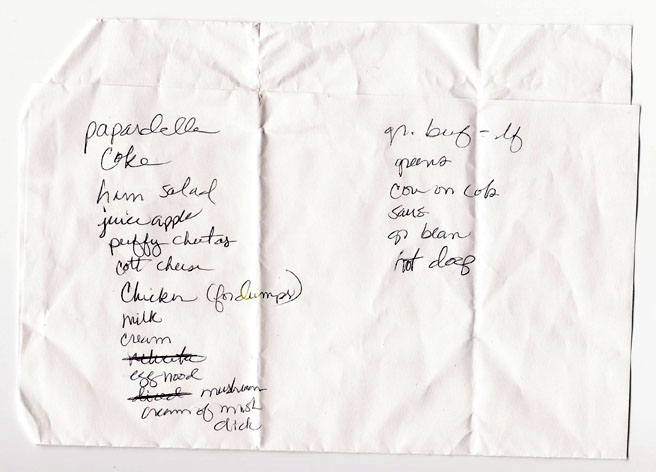 papardelle
Coke
ham salad
juice apple
puffy cheetos
cott cheese
Chicken (for dumps)
milk
cream
egg nood
mushroom
cream of mush
chick
gr. beef - lf
greens
corn on cob
saus
gr bean
hot dog